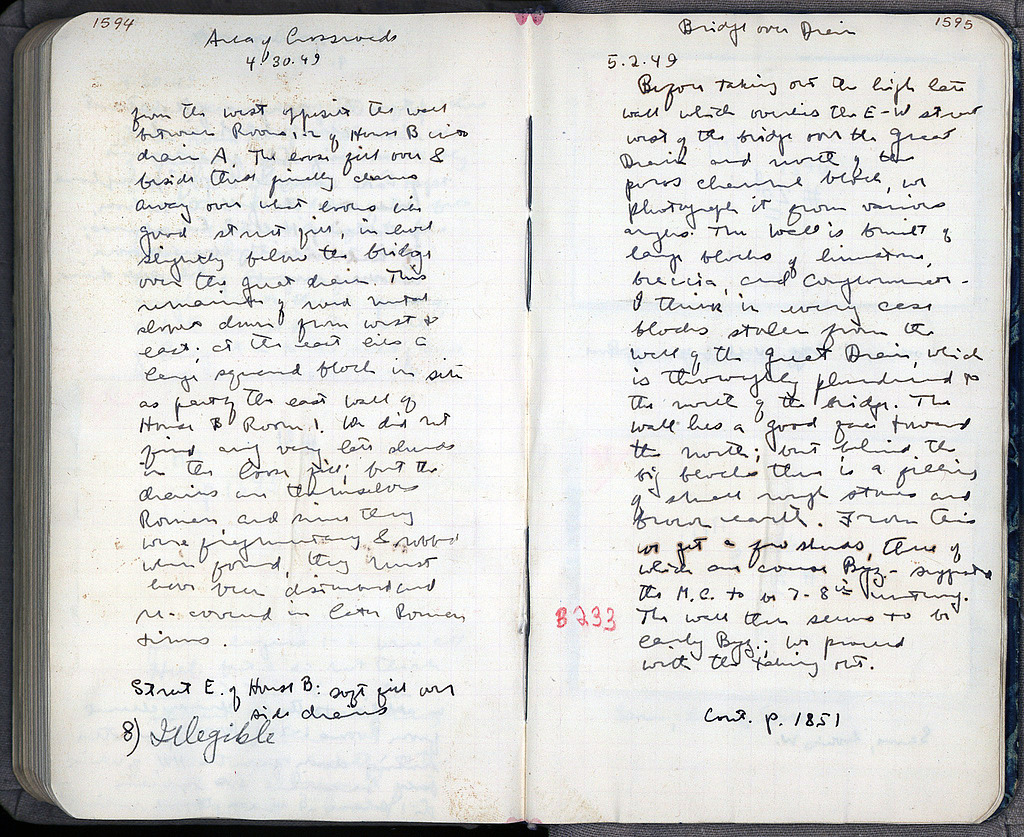 1594
Area of Crossroads
4.30.49
from the west opposite the wall
between Rooms 1, 2 of House B into
drain A. The loose fill over &
beside these finally cleans
away over what looks like
good street fill, in level
slightly below the bridge
over the great drain. This
remainder of road metal
slopes down from west to
east; at the east lies a
large squared block in situ
as part of the east wall of
House B Room 1. We did not
find any very late sherds
in the loose fill; but the
drains are themselves
Roman, and since they
were fragmentary & robbed
when found, they must
have been disturbed and
re-covered in later Roman
times.
Street E. of House B: soft fill over
side drains
8) Illegible
1595
Bridge over Drain
5.2.49
Before taking out the high late
wall which overlies the E-W street
west of the bridge over the Great
Drain and north of the
poros channel block, we
photograph it from various
angles. The wall is built of
large blocks of limestone,
breccia, and conglomerate -
I think in every case
blocks stolen from the
wall of the Great Drain, which
is thoroughly plundered to
the north of the bridge. The
wall has a good face toward
the north; but behind the
big blocks there is a filling
of small rough stones and
brown earth. From this
we get a few sherds, three of
which are coarse Byz. - suggests
the M.C. to be 7-8th century.
B 233
The wall then seems to be
early Byz.; we proceed
with the taking out.
Cont. p. 1851